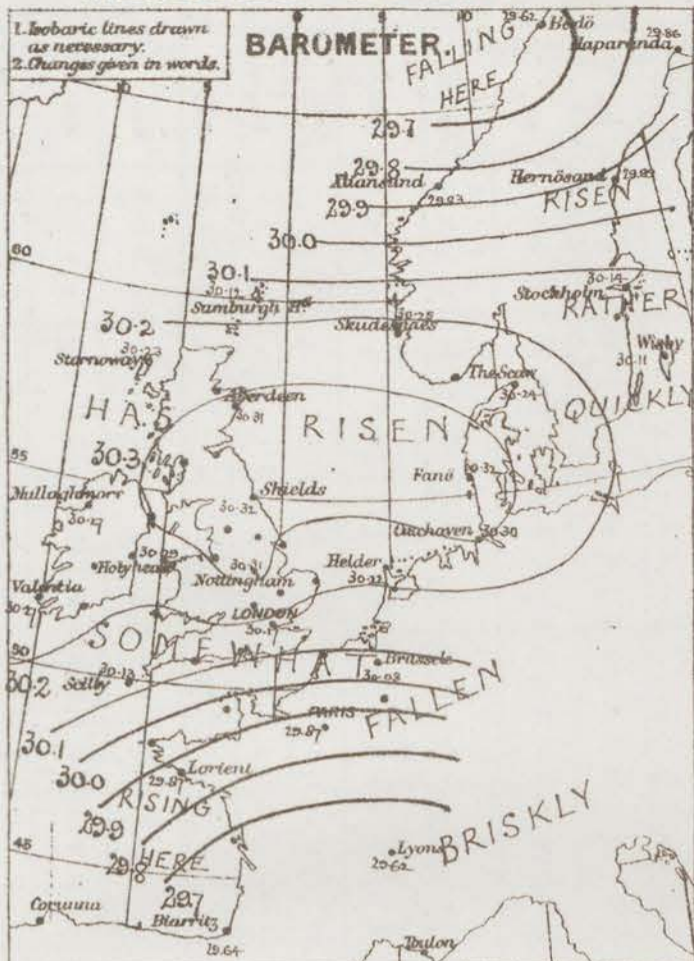 1. Isobaric lines drawn
as necessary.
2. Changes given in words.
BAROMETER.
10
5
0
5
10
29·62
Bodö
Haparanda
29·86
FALLING
HERE
29·7
29·8
Xtiansund
29·83
Hernösand
29·9
RISEN
30·0
60
30·1
30·12
Sumburgh H.
30·14
Stockholm
RATHER
30·2
Skudesnaes
Wisby
30·11
Stornoway
The Scaw
30·24
QUICKLY
Aberdeen
30·31
HAS
RISEN
55
30·3
Fanö
30·32
Mullaghmore
Shields
30·32
30·30
Cuxhaven
Holyhead
30·29
30·31
Nottingham
Helder
30·22
Valentia
LONDON
SOMEWHAT
50
30·2
Scilly
Brussels
30·08
FALLEN
30·1
PARIS
29·87
30·0
Lorient
29·87
29·9
RISING
HERE
BRISKLY
45
29·8
Lyons
29·62
29·7
Corunna
Biarritz
29·64
Toulon